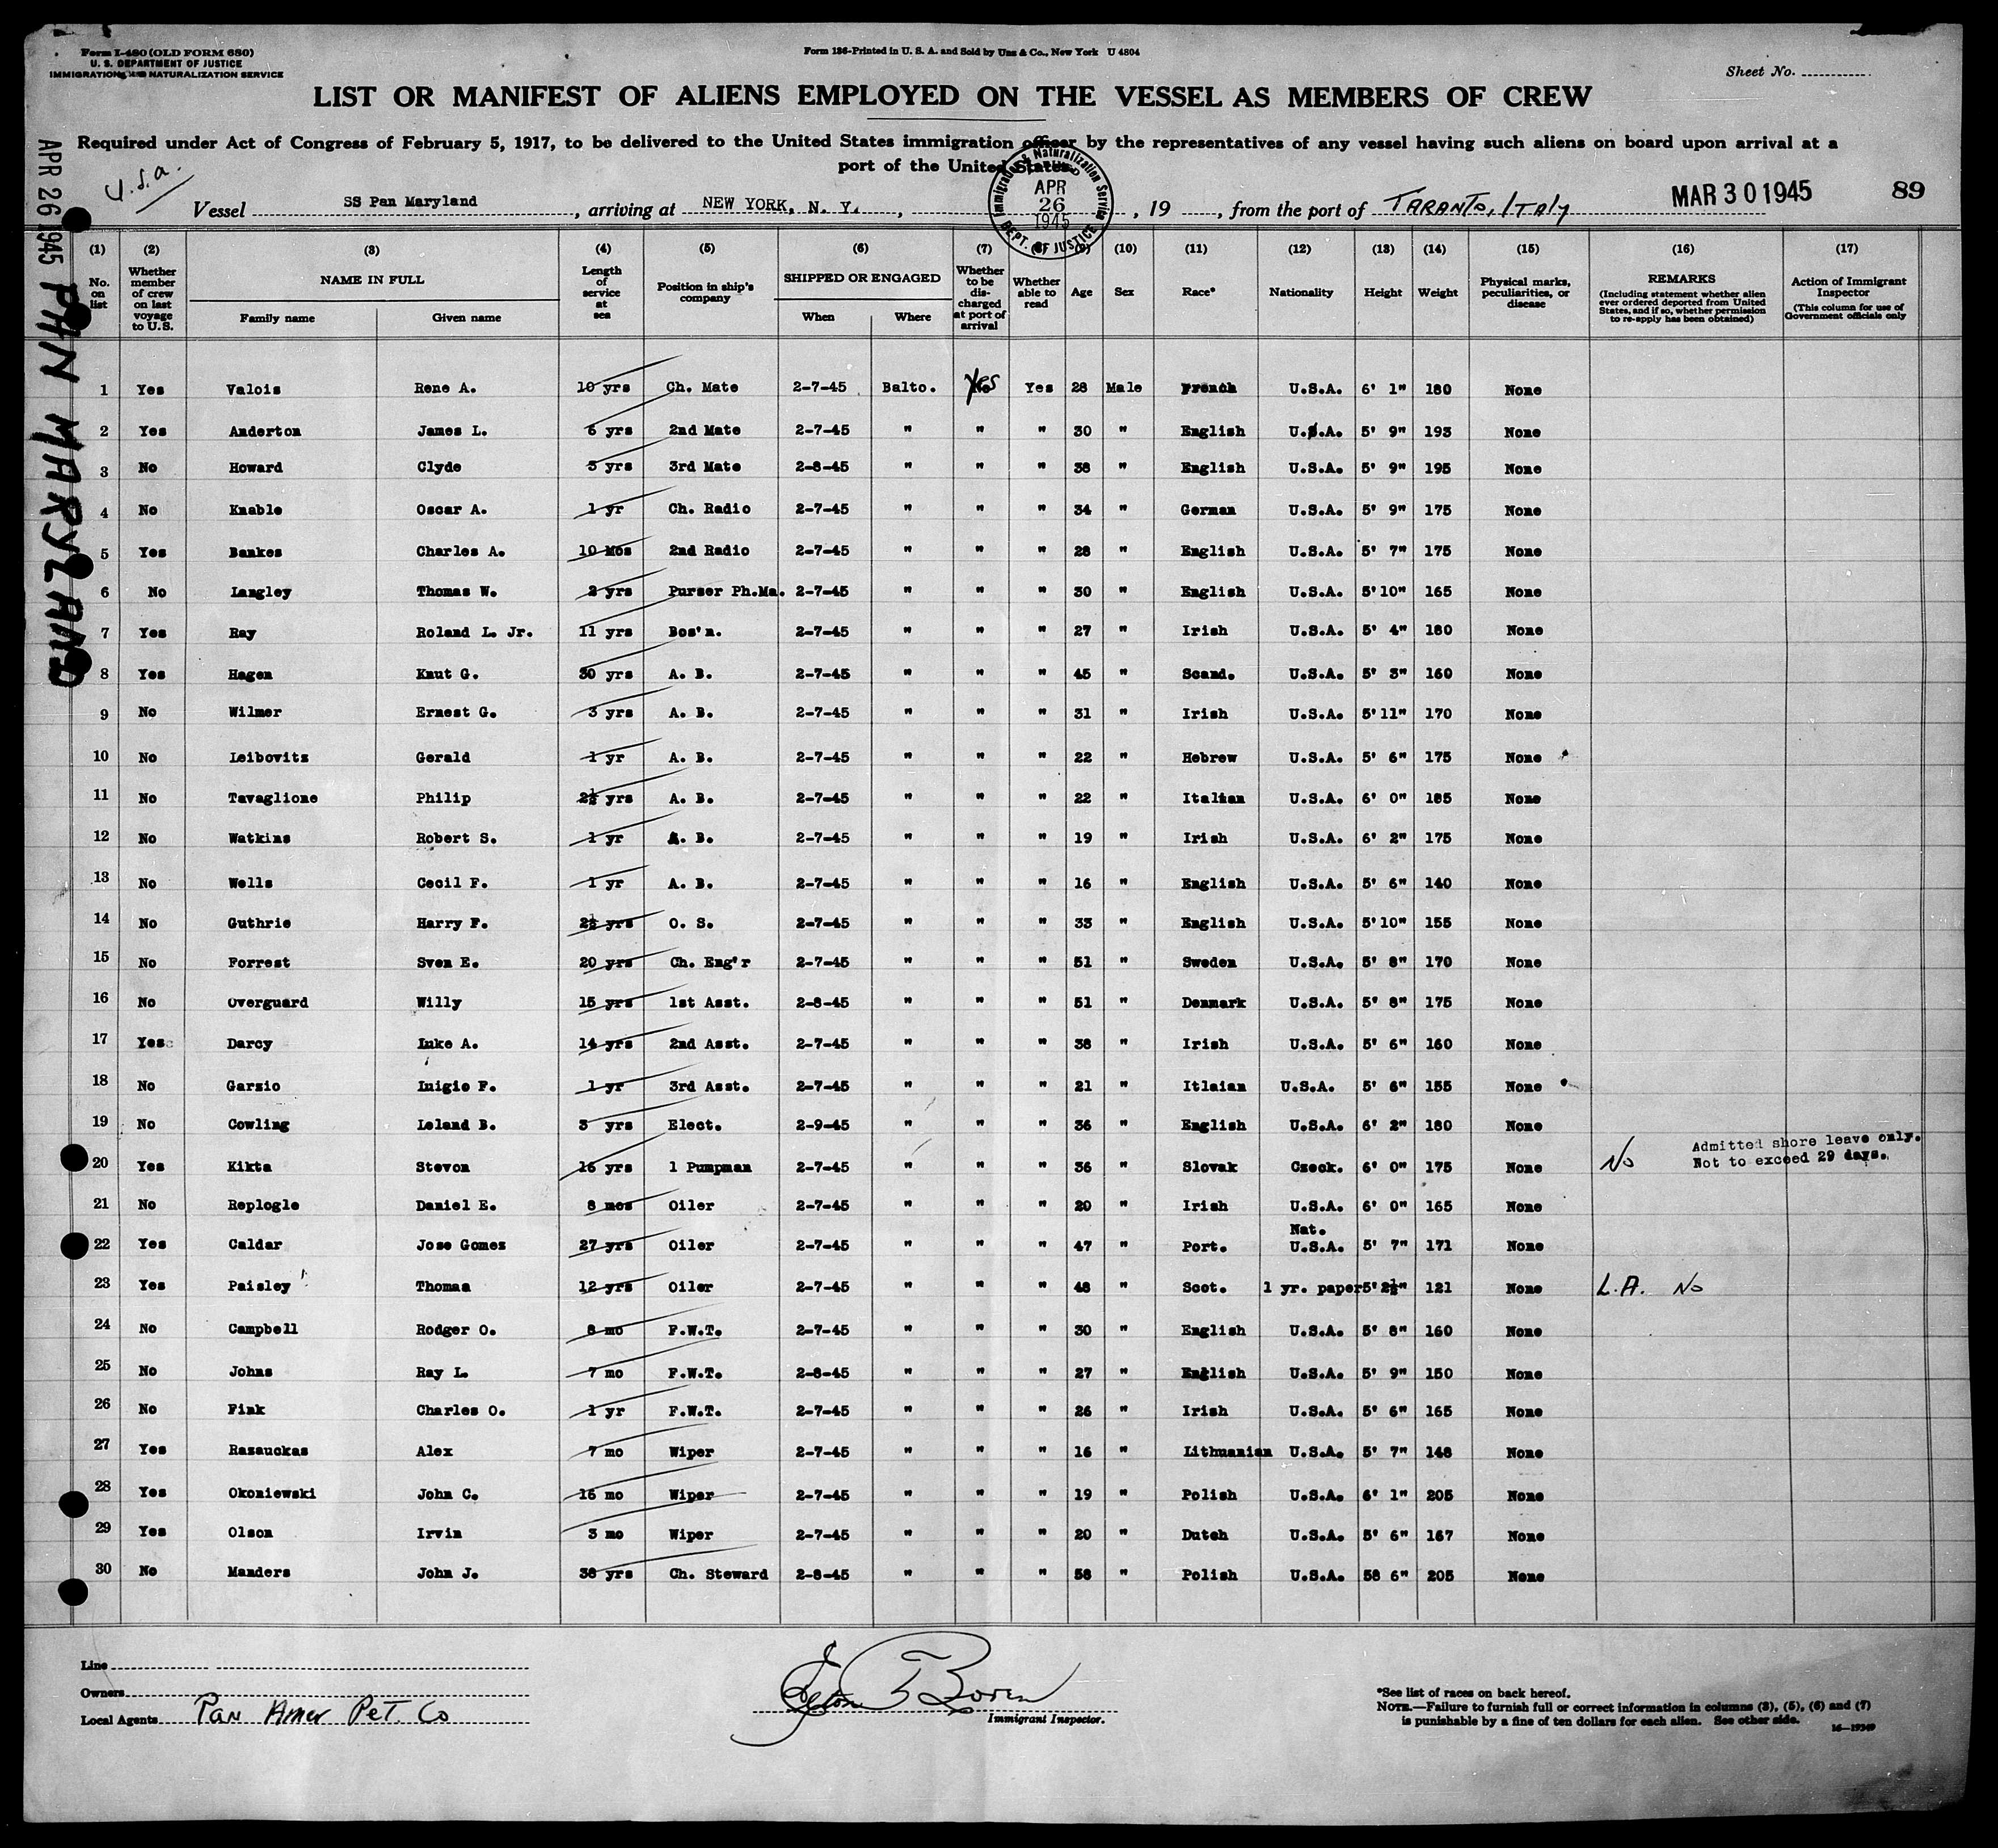 Form I-480 (OLD FORM 680)
U. S. DEPARTMENT OF JUSTICE
IMMIGRATION AND NATURALIZATION SERVICE
Form 186-Printed in U. S. A. and Sold by Unz & Co., New York U 4804
Sheet No.
LIST OR MANIFEST OF ALIENS EMPLOYED ON THE VESSEL AS MEMBERS OF CREW
Required under Act of Congress of February 5, 1917, to be delivered to the United States immigration officer by the representatives of any vessel having such aliens on board upon arrival at a
port of the United States
U.S.A.
APR 26 1945 PAN MARYLAND
Immigration & Naturalization Service APR 26 1945 DEPT. OF JUSTICE
Vessel SS Pan Maryland, arriving at NEW YORK, N. Y., , 19 , from the port of TARANTO, ITALY MAR 30 1945 89
(1) (2) (3) (4) (5) (6) (7) (8) (9) (10) (11) (12) (13) (14) (15) (16) (17)
No. on list
Whether member of crew on last voyage to U.S.
NAME IN FULL
Family name Given name
Length of service at sea
Position in ship's company
SHIPPED OR ENGAGED
When Where
Whether to be discharged at port of arrival
Whether able to read
Age
Sex
Race*
Nationality
Height
Weight
Physical marks, peculiarities, or disease
REMARKS
(Including statement whether alien ever ordered deported from United States, and if so, whether permission to re-apply has been obtained)
Action of Immigrant Inspector
(This column for use of Government officials only
1 Yes Valois Rene A. 10 yrs Ch. Mate 2-7-45 Balto. Yes Yes 28 Male French U.S.A. 6' 1" 180 None
2 Yes Anderton James L. 6 yrs 2nd Mate 2-7-45 " " " 30 " English U.S.A. 5' 9" 193 None
3 No Howard Clyde 3 yrs 3rd Mate 2-8-45 " " " 38 " English U.S.A. 5' 9" 195 None
4 No Knable Oscar A. 1 yr Ch. Radio 2-7-45 " " " 34 " German U.S.A. 5' 9" 175 None
5 Yes Bankes Charles A. 10 Mos 2nd Radio 2-7-45 " " " 28 " English U.S.A. 5' 7" 175 None
6 No Langley Thomas W. 2 yrs Purser Ph.Ma. 2-7-45 " " " 30 " English U.S.A. 5'10" 165 None
7 Yes Ray Roland L. Jr. 11 yrs Bos'n. 2-7-45 " " " 27 " Irish U.S.A. 5' 4" 180 None
8 Yes Hagen Knut G. 30 yrs A. B. 2-7-45 " " " 45 " Scand. U.S.A. 5' 3" 160 None
9 No Wilmer Ernest G. 3 yrs A. B. 2-7-45 " " " 31 " Irish U.S.A. 5'11" 170 None
10 No Leibovitz Gerald 1 yr A. B. 2-7-45 " " " 22 " Hebrew U.S.A. 5' 6" 175 None
11 No Tavaglione Philip 2½ yrs A. B. 2-7-45 " " " 22 " Italian U.S.A. 6' 0" 185 None
12 No Watkins Robert S. 1 yr A. B. 2-7-45 " " " 19 " Irish U.S.A. 6' 2" 175 None
13 No Wells Cecil F. 1 yr A. B. 2-7-45 " " " 16 " English U.S.A. 5' 6" 140 None
14 No Guthrie Harry F. 2½ yrs O. S. 2-7-45 " " " 33 " English U.S.A. 5'10" 155 None
15 No Forrest Sven E. 20 yrs Ch. Eng'r 2-7-45 " " " 51 " Sweden U.S.A. 5' 8" 170 None
16 No Overguard Willy 15 yrs 1st Asst. 2-8-45 " " " 51 " Denmark U.S.A. 5' 8" 175 None
17 Yes Darcy Luke A. 14 yrs 2nd Asst. 2-7-45 " " " 38 " Irish U.S.A. 5' 6" 160 None
18 No Garzio Luigie F. 1 yr 3rd Asst. 2-7-45 " " " 21 " Itlaian U.S.A. 5' 6" 155 None
19 No Cowling Leland B. 3 yrs Elect. 2-9-45 " " " 36 " English U.S.A. 6' 2" 180 None
20 Yes Kikta Stevon 16 yrs 1 Pumpman 2-7-45 " " " 36 " Slovak Czeck. 6' 0" 175 None No Admitted shore leave only. Not to exceed 29 days.
21 No Replogle Daniel E. 8 mos Oiler 2-7-45 " " " 20 " Irish U.S.A. 6' 0" 165 None
22 Yes Caldar Jose Gomez 27 yrs Oiler 2-7-45 " " " 47 " Port. Nat. U.S.A. 5' 7" 171 None
23 Yes Paisley Thomas 12 yrs Oiler 2-7-45 " " " 48 " Scot. 1 yr. paper 5' 2½" 121 None L.A. No
24 No Campbell Rodger O. 8 mo F.W.T. 2-7-45 " " " 30 " English U.S.A. 5' 8" 160 None
25 No Johns Ray L. 7 mo F.W.T. 2-8-45 " " " 27 " English U.S.A. 5' 9" 150 None
26 No Fink Charles O. 1 yr F.W.T. 2-7-45 " " " 26 " Irish U.S.A. 5' 6" 165 None
27 Yes Razauckas Alex 7 mo Wiper 2-7-45 " " " 16 " Lithuanian U.S.A. 5' 7" 148 None
28 Yes Okoniewski John C. 16 mo Wiper 2-7-45 " " " 19 " Polish U.S.A. 6' 1" 205 None
29 Yes Olson Irvin 3 mo Wiper 2-7-45 " " " 20 " Dutch U.S.A. 5' 6" 167 None
30 No Manders John J. 38 yrs Ch. Steward 2-8-45 " " " 58 " Polish U.S.A. 58 6" 205 None
Line
Owners
Local Agents Pan Amer Pet. Co
Immigrant Inspector.
*See list of races on back hereof.
NOTE.—Failure to furnish full or correct information in columns (3), (5), (6) and (7)
is punishable by a fine of ten dollars for each alien. See other side.
16—19349